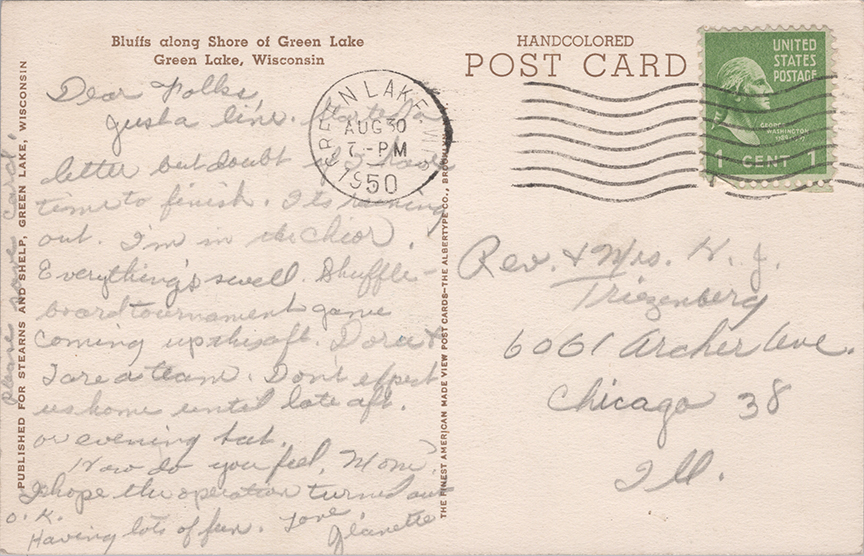 Bluffs along Shore of Green Lake
Green Lake, Wisconsin
Dear Folks,
Just a line. Started a
letter but doubt if I have
time to finish. Its raining
out. I'm in the Chior.
Everything's swell. Shuffle-
board tournament game
coming up this aft. Dora &
I are a team. Don't expect
us home until late aft.
or evening Sat.
How do you feel, Mom?
I hope the operation turned out
o.k.
Having lots of fun. Love,
Jeanette
please save card.
PUBLISHED FOR STEARNS AND SHELP, GREEN LAKE, WISCONSIN
THE FINEST AMERICAN MADE VIEW POST CARDS—THE ALBERTYPE CO., BROOKLYN
GREEN LAKE, WIS
AUG 30
7 - PM
1950
HANDCOLORED
POST CARD
UNITED
STATES
POSTAGE
GEORGE
WASHINGTON
1 CENT 1
Rev. & Mrs. H. J.
Triezenberg
6061 Archer Ave.
Chicago 38
Ill.